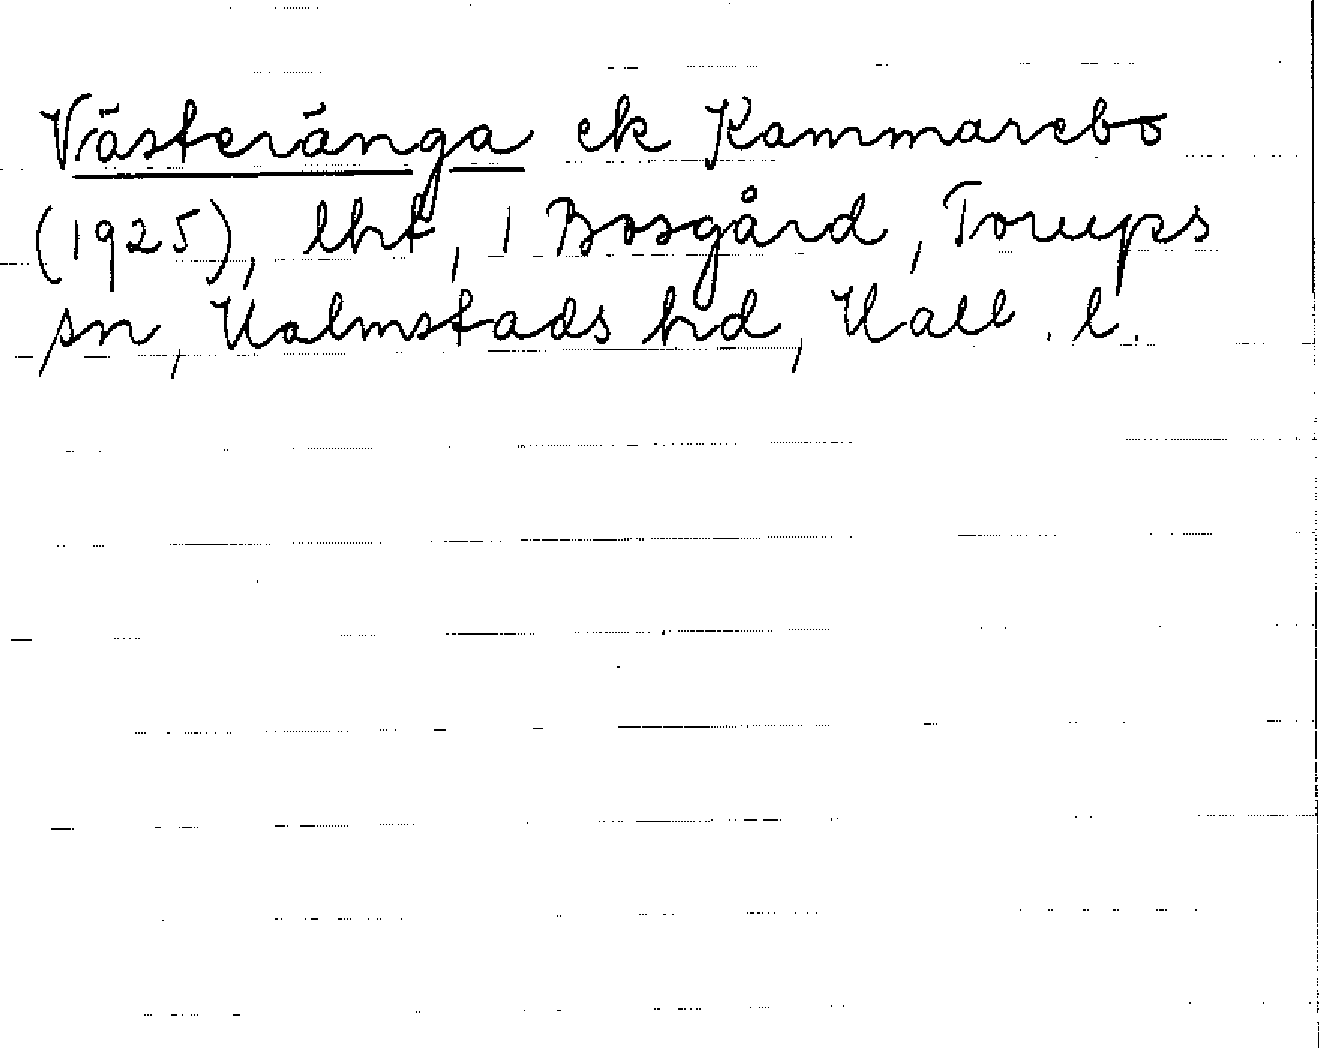 Västeränga ek Kammarebo
(1925), lht, 1 Bosgård, Torups
sn, Halmstads hd, Hall. l.